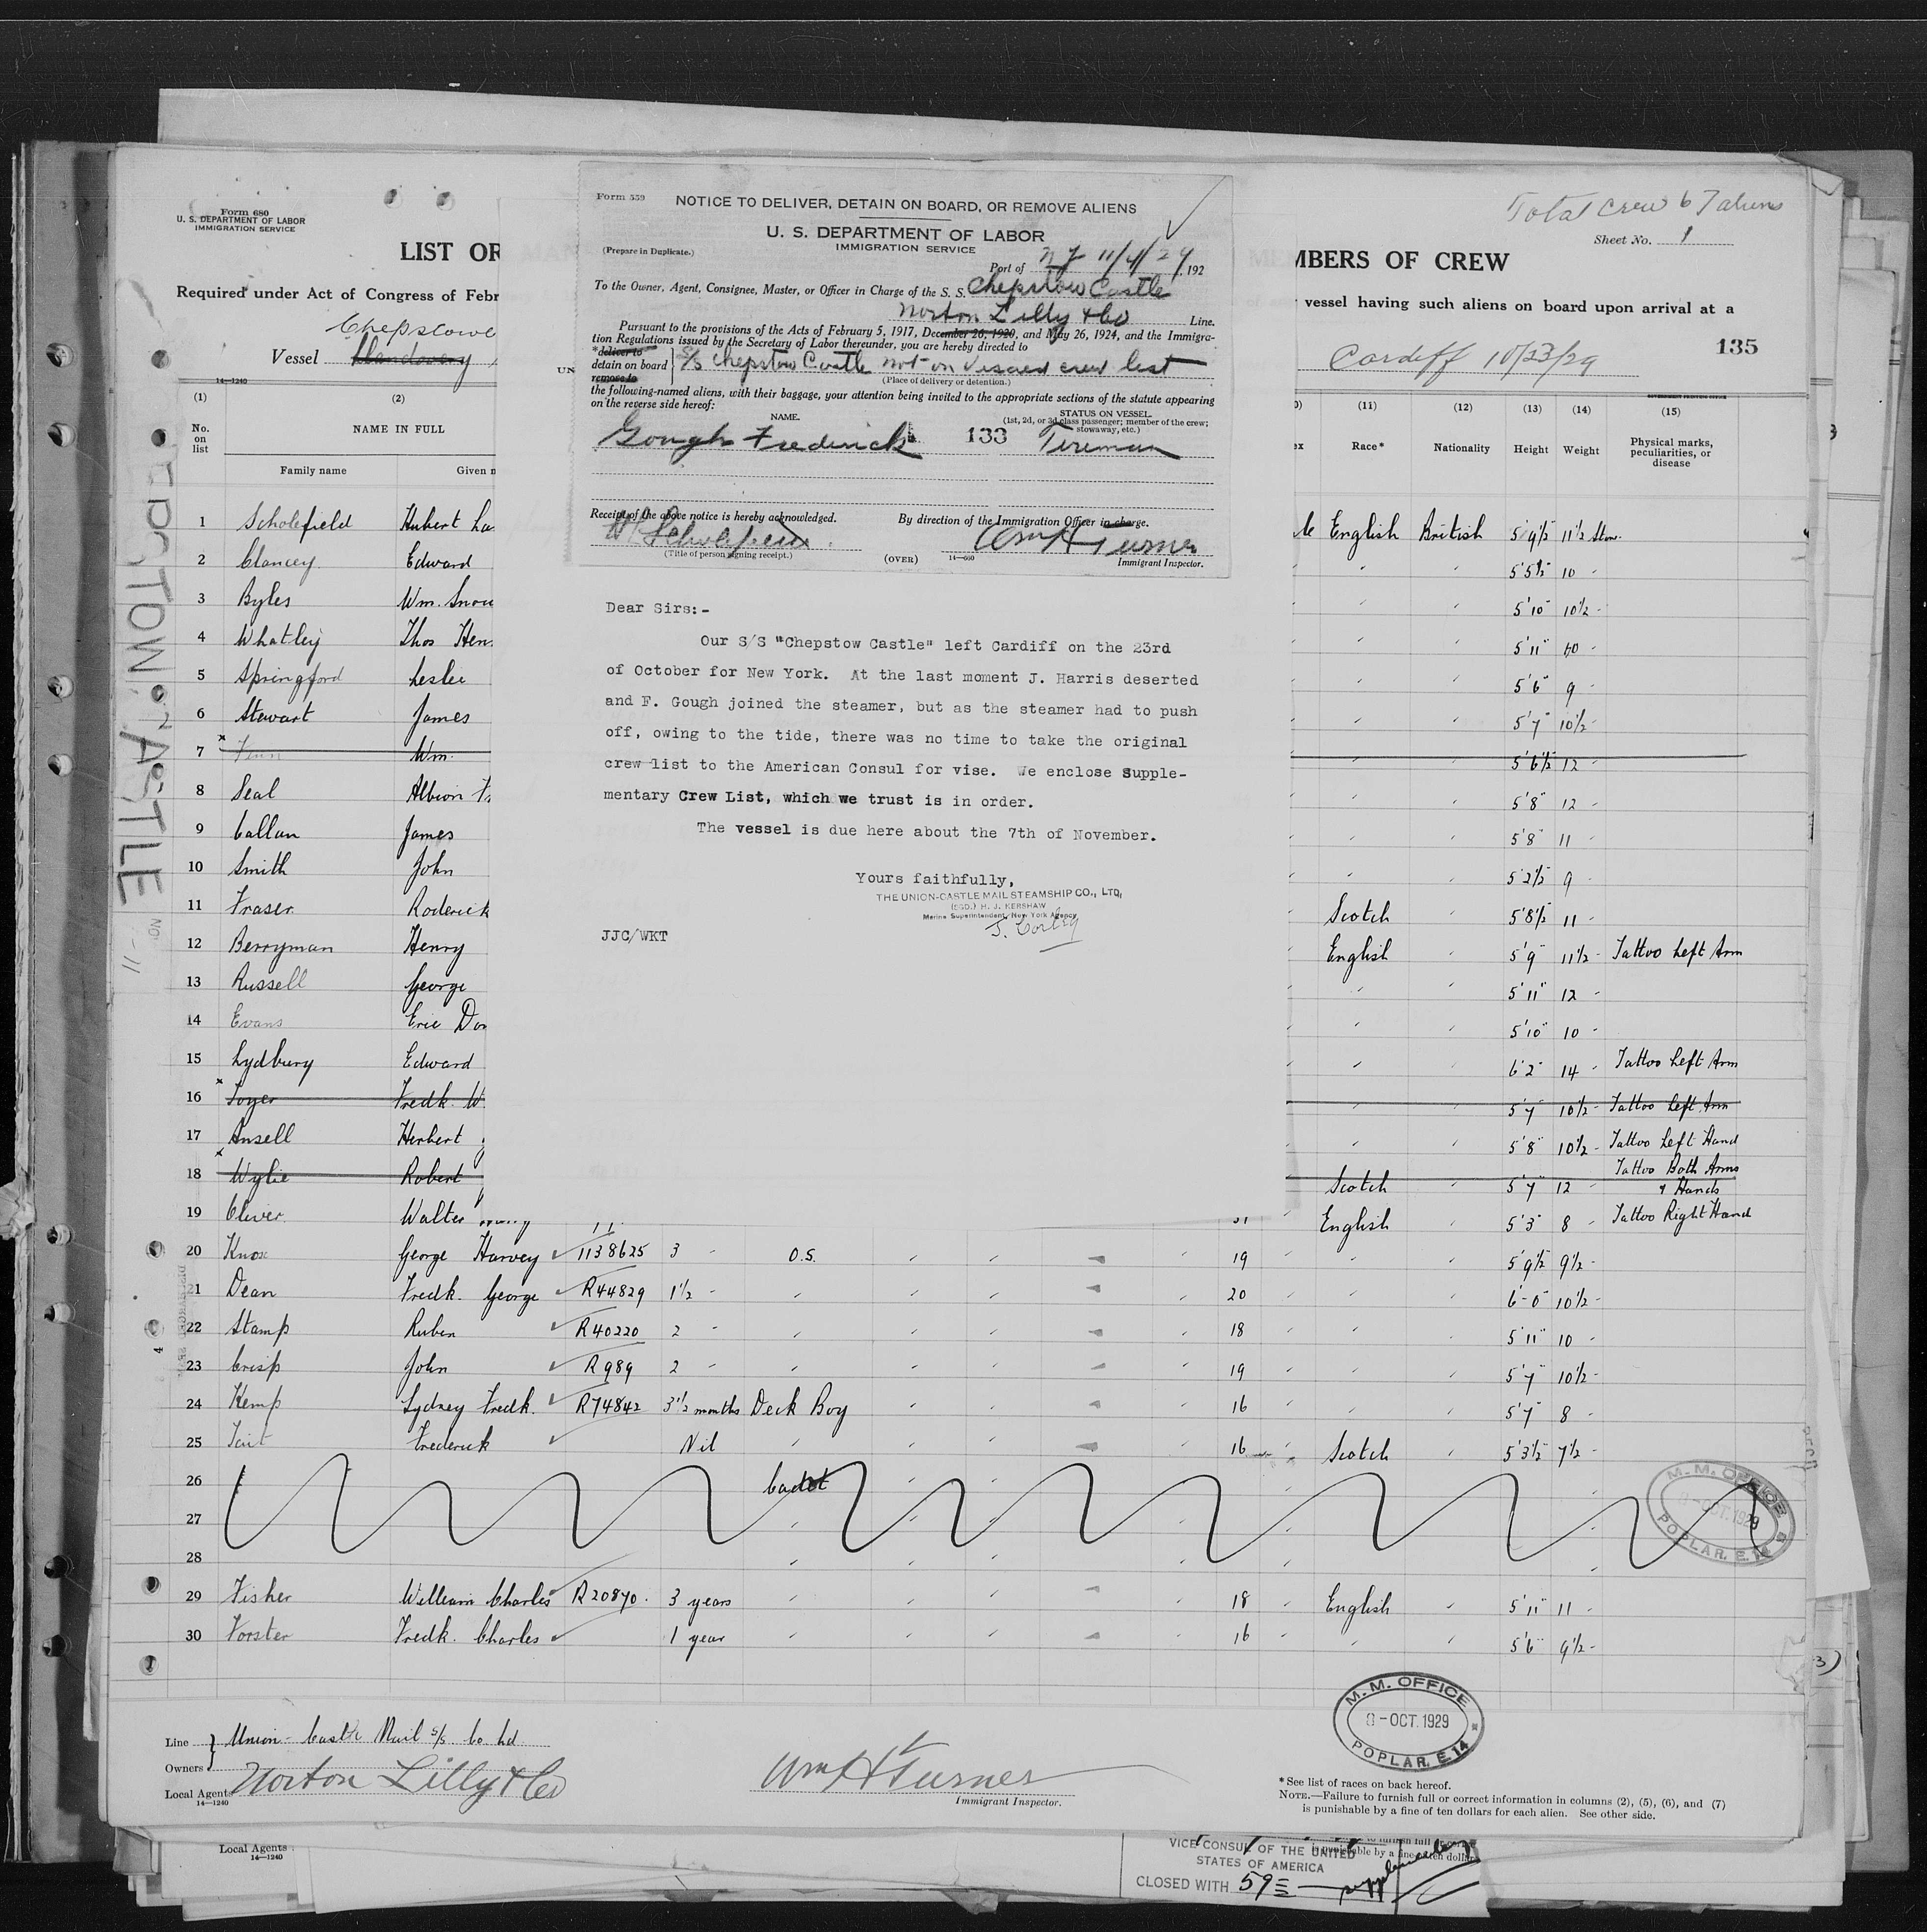 Form 680
U. S. DEPARTMENT OF LABOR
IMMIGRATION SERVICE
LIST OR
Required under Act of Congress of Febr
Chepstowe
Vessel Llandovery
14—1240
(1) (2)
No. on list
NAME IN FULL
Family name Given n
Total Crew 67 aliens
Sheet No. 1
MBERS OF CREW
vessel having such aliens on board upon arrival at a
135
Cardiff 10/23/29
(11) (12) (13) (14) (15)
Race* Nationality Height Weight Physical marks, peculiarities, or disease
Form 559
NOTICE TO DELIVER, DETAIN ON BOARD, OR REMOVE ALIENS
U. S. DEPARTMENT OF LABOR
IMMIGRATION SERVICE
(Prepare in Duplicate.)
Port of N Y 11/4/29, 192
To the Owner, Agent, Consignee, Master, or Officer in Charge of the S. S. Chepstow Castle
Norton Lilly & Co Line.
Pursuant to the provisions of the Acts of February 5, 1917, December 26, 1920, and May 26, 1924, and the Immigra-
tion Regulations issued by the Secretary of Labor thereunder, you are hereby directed to
*deliver to
detain on board } S/S Chepstow Castle not on Visaed crew list
remove to
(Place of delivery or detention.)
the following-named aliens, with their baggage, your attention being invited to the appropriate sections of the statute appearing
on the reverse side hereof:
NAME. STATUS ON VESSEL.
(1st, 2d, or 3d class passenger; member of the crew; stowaway, etc.)
Gough Frederick 133 Fireman
Receipt of the above notice is hereby acknowledged. By direction of the Immigration Officer in charge.
Wm H Turner
(Title of person signing receipt.) (OVER) 14—660 Immigrant Inspector.
Dear Sirs:-
Our S/S "Chepstow Castle" left Cardiff on the 23rd
of October for New York. At the last moment J. Harris deserted
and F. Gough joined the steamer, but as the steamer had to push
off, owing to the tide, there was no time to take the original
crew list to the American Consul for vise. We enclose Supple-
mentary Crew List, which we trust is in order.
The vessel is due here about the 7th of November.
Yours faithfully,
THE UNION-CASTLE MAIL STEAMSHIP CO., LTD,
(SGD.) H. J. KERSHAW
Marine Superintendent, New York Agency
JJC/WKT
1 Scholefield Hubert La English British 5'9½ 11½ Ston.
2 Clancey Edward 5'5½ 10
3 Byles Wm. Snow 5'10" 10½
4 Whatley Thos Hen. 5'11" 10
5 Springford Leslie 5'6" 9
6 Stewart James 5'7" 10½
7 Wm. 5'6½ 12
8 Seal Albion 5'8" 12
9 Callan James 5'8" 11
10 Smith John 5'2½ 9
11 Fraser Roderick Scotch 5'8½ 11
12 Berryman Henry English 5'9" 11½ Tattoo Left Arm
13 Russell George 5'11" 12
14 Evans Eric Don 5'10" 10
15 Lydbury Edward 6'2" 14 Tattoo Left Arm
16 Toyer Fredk. W. 5'7" 10½ Tattoo Left Arm
17 Ansell Herbert 5'8" 10½ Tattoo Left Hand
18 Wylie Robert Scotch 5'7" 12 Tattoo Both Arms & Hands
19 Oliver Walter English 5'3" 8 Tattoo Right Hand
20 Knox George Harvey 1138625 3 O.S. 19 5'9½ 9½
21 Dean Fredk. George R44829 1½ 20 6'-0" 10½
22 Stamp Ruben R40220 2 18 5'11" 10
23 Crisp John R989 2 19 5'7" 10½
24 Kemp Sydney Fredk. R74842 3½ months Deck Boy 16 5'7" 8
25 Tait Frederick Nil 16 Scotch 5'3½ 7½
26 Cadet
27
28
29 Fisher William Charles R20870. 3 years 18 English 5'11" 11
30 Forster Fredk. Charles 1 year 16 5'6" 9½
M. M. OFFICE
8-OCT.1929
POPLAR. E.14
Line Union-Castle Mail S/S Co Ld.
Owners
Local Agents Norton Lilly & Co
14—1240
Wm H Turner
Immigrant Inspector.
M. M. OFFICE
8-OCT.1929
POPLAR. E.14
*See list of races on back hereof.
NOTE.—Failure to furnish full or correct information in columns (2), (5), (6), and (7)
is punishable by a fine of ten dollars for each alien. See other side.
Local Agents
14—1240
VICE CONSUL OF THE UNITED
STATES OF AMERICA
CLOSED WITH 59